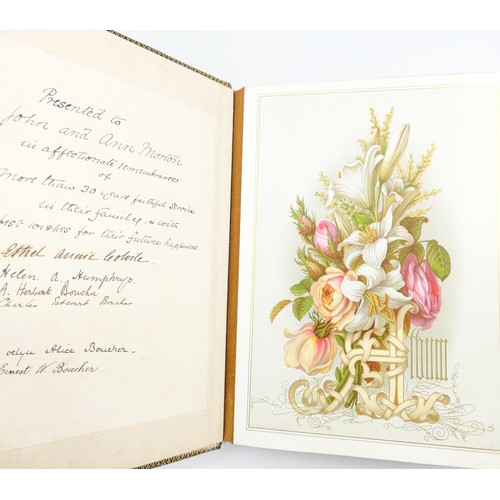 Presented to
John and Ann Morton
in affectionate remembrance
of
More than 30 years faithful service
in their family, & with
best wishes for their future happiness
Ethel Annie
Helen A. Humphrys
A. Herbert Boucher
Charles Edward Boucher
velyn Alice Boucher.
Ernest W. Boucher.